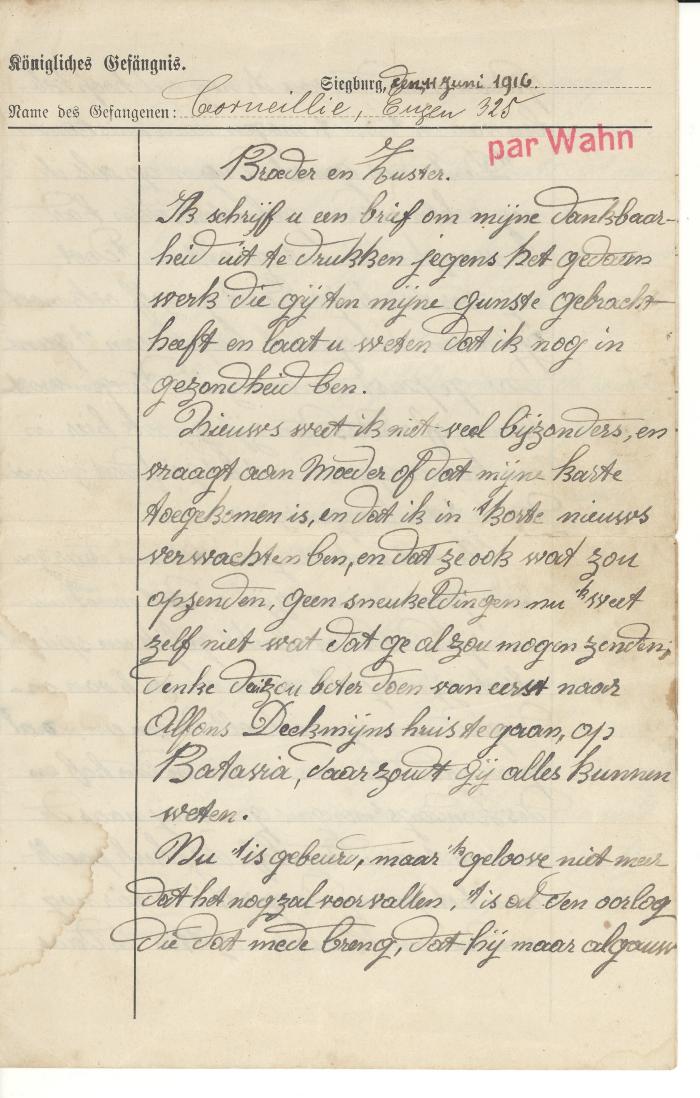 Königliches Gefängnis.
Siegburg, den 11 Juni 1916.
Name des Gefangenen: Corneillie, Eugen 325
par Wahn
Broeder en Zuster.
Ik schrijf u een brief om mijne dankbaar-
heid uit te drukken jegens het gedaan
werk die gij ten mijne gunste gebracht
heeft en laat u weten dat ik nog in
gezondheid ben.
Nieuws weet ik niet veel bijzonders, en
vraagt aan Moeder of dat mijne karte
toegekomen is, en dat ik in 't korte nieuws
verwachten ben, en dat ze ook wat zou
opzenden, geen sneukeldingen nu 'k weet
zelf niet wat dat ge al zou mogen zenden,
denke zou beter doen van eerst naar
Alfons Deckmijns huis te gaan, op
Batavia, daar zoudt gij alles kunnen
weten.
Nu 't is gebeurd, maar 'k geloove niet meer
dat het nog zal voorvallen, 't is al den oorlog
die dat mede breng, dat hij maar al gauw